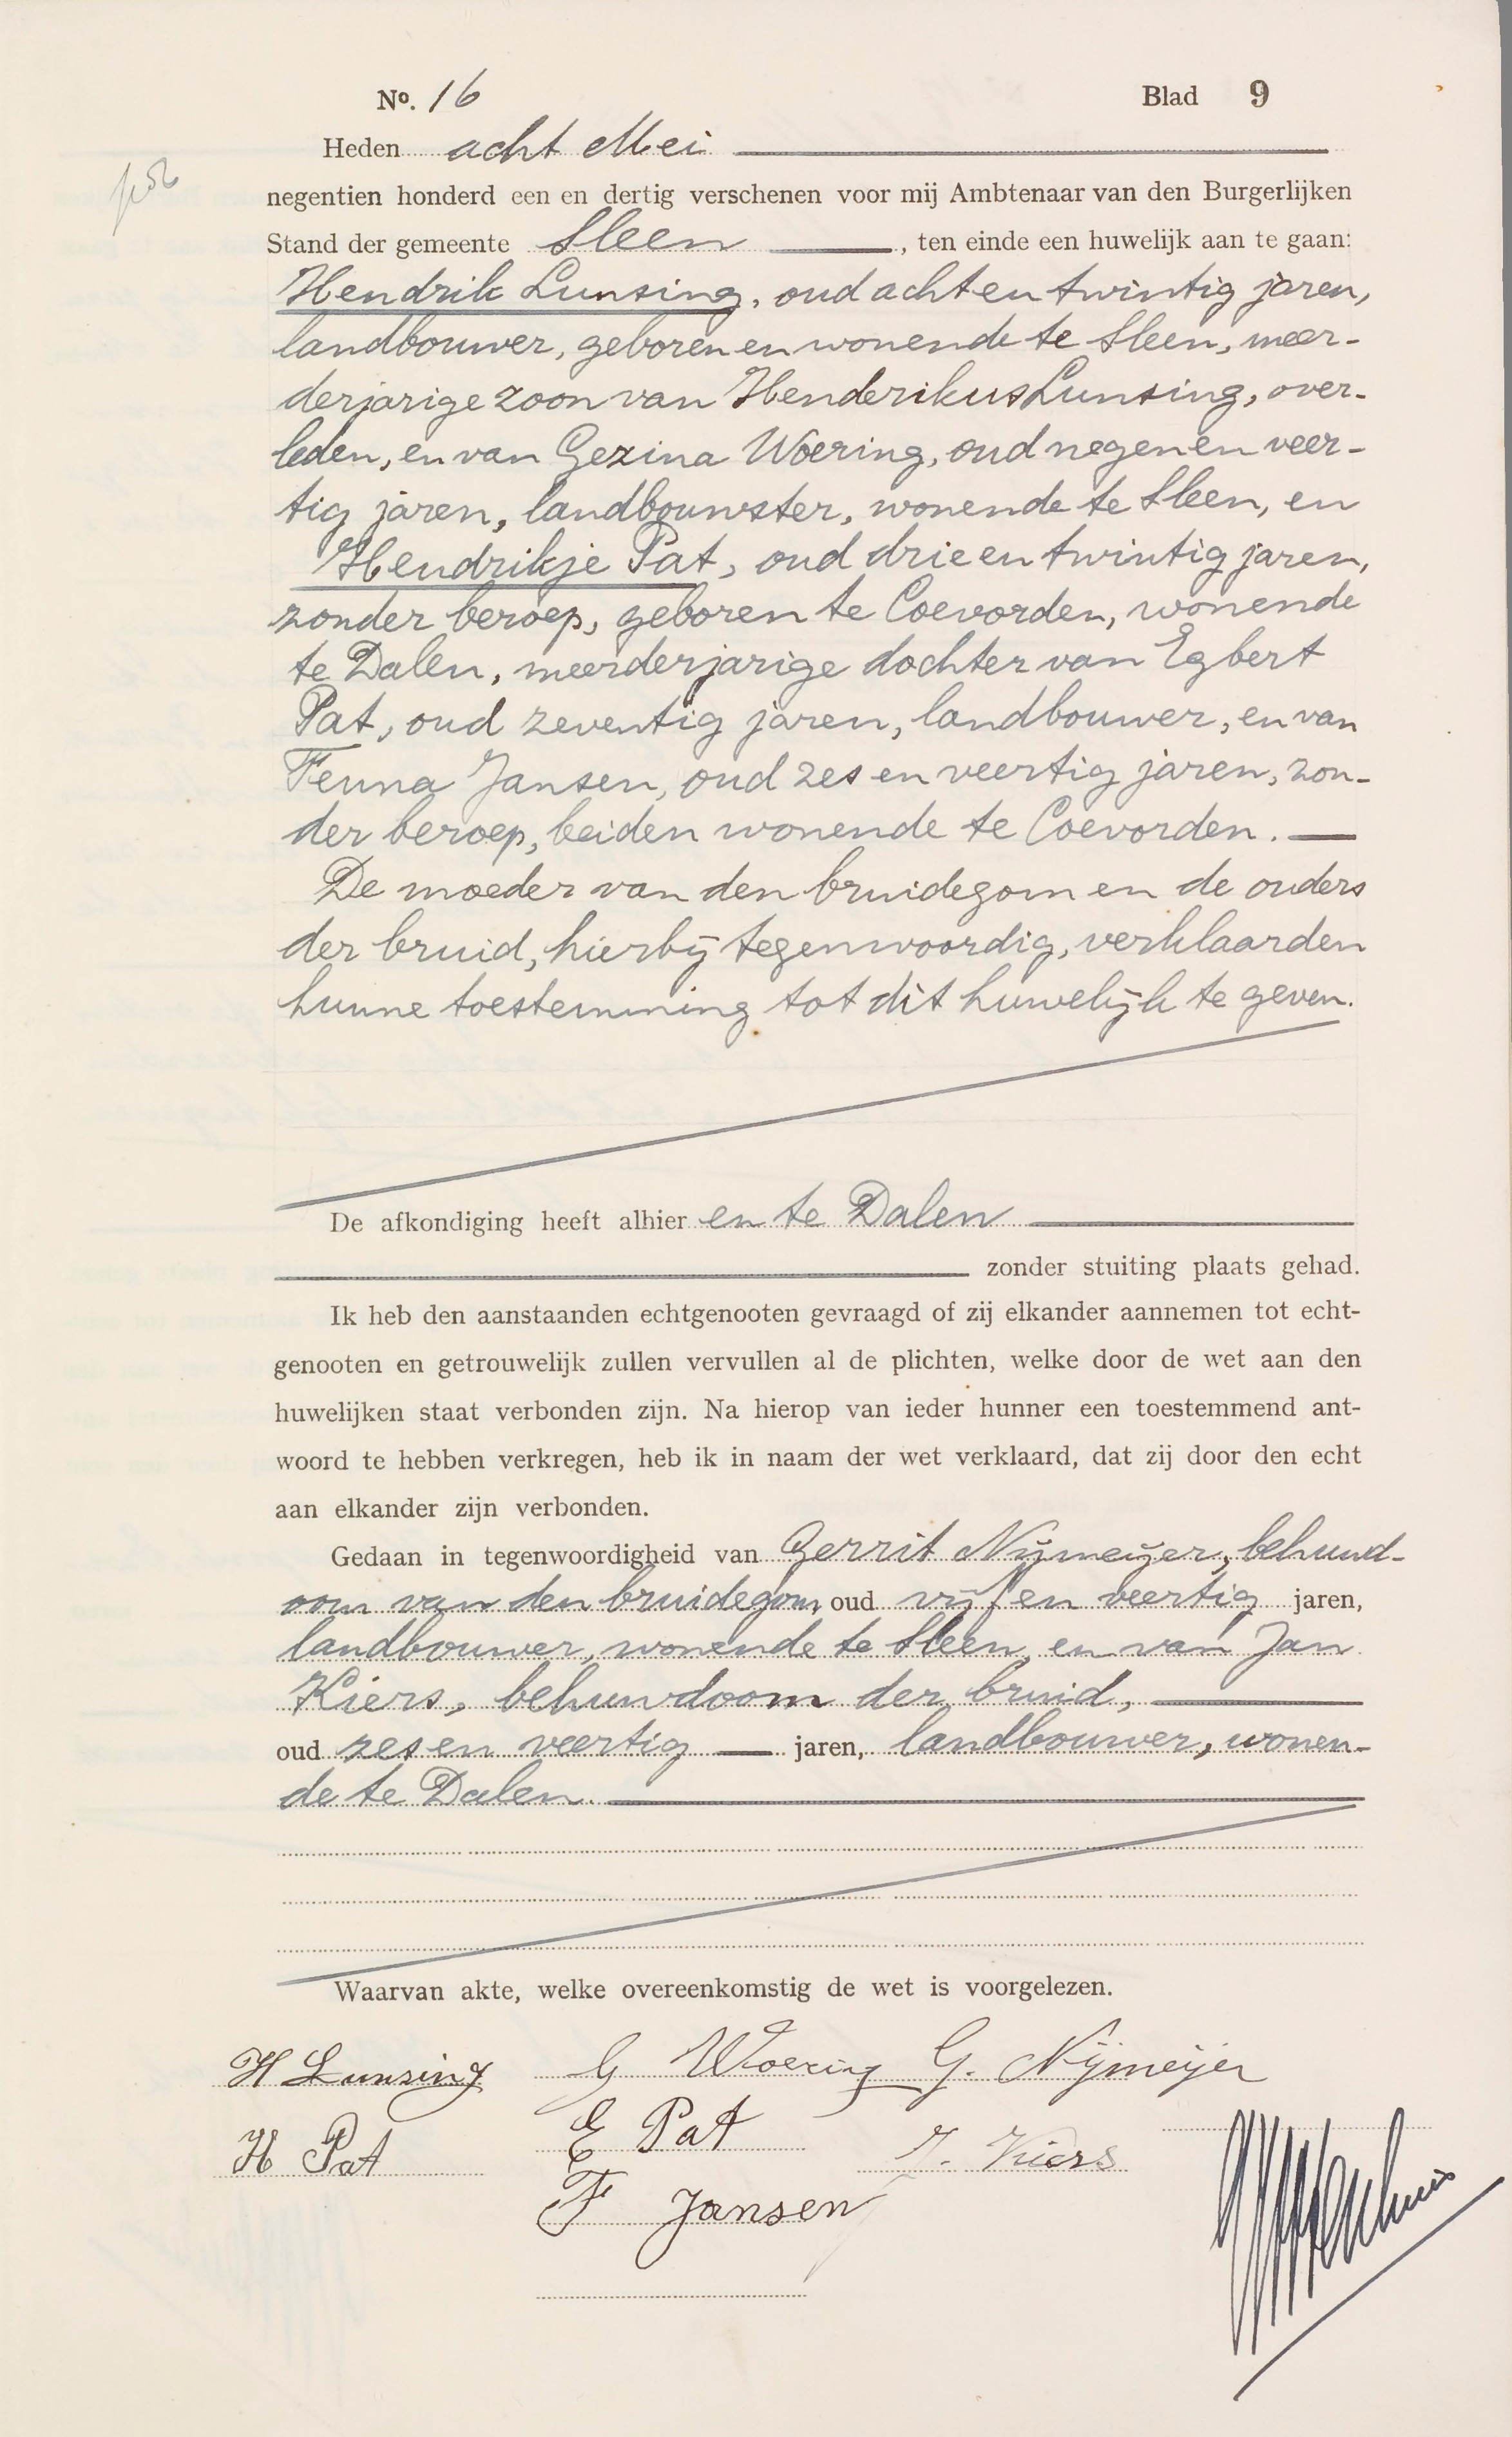 No. 16 Blad 9
Heden acht Mei
negentien honderd een en dertig verschenen voor mij Ambtenaar van den Burgerlijken
Stand der gemeente Sleen, ten einde een huwelijk aan te gaan:
Hendrik Lunsing, oud acht en twintig jaren,
landbouwer, geboren en wonende te Sleen, meer-
derjarige zoon van Henderikus Lunsing, over-
leden, en van Gezina Woering, oud negen en veer-
tig jaren, landbouwster, wonende te Sleen, en
Hendrikje Pat, oud drie en twintig jaren,
zonder beroep, geboren te Coevorden, wonende
te Dalen, meerderjarige dochter van Egbert
Pat, oud zeventig jaren, landbouwer, en van
Fenna Jansen, oud zes en veertig jaren, zon-
der beroep, beiden wonende te Coevorden.
De moeder van den bruidegom en de ouders
der bruid, hierbij tegenwoordig, verklaarden
hunne toestemming tot dit huwelijk te geven.
De afkondiging heeft alhier en te Dalen
zonder stuiting plaats gehad.
Ik heb den aanstaanden echtgenooten gevraagd of zij elkander aannemen tot echt-
genooten en getrouwelijk zullen vervullen al de plichten, welke door de wet aan den
huwelijken staat verbonden zijn. Na hierop van ieder hunner een toestemmend ant-
woord te hebben verkregen, heb ik in naam der wet verklaard, dat zij door den echt
aan elkander zijn verbonden.
Gedaan in tegenwoordigheid van Gerrit Nijmeijer, behuwd-
oom van den bruidegom, oud vijf en veertig jaren,
landbouwer, wonende te Sleen, en van Jan
Kiers, behuwdoom der bruid,
oud zes en veertig jaren, landbouwer, wonen-
de te Dalen.
Waarvan akte, welke overeenkomstig de wet is voorgelezen.
H Lunsing G Woering G. Nijmeijer
H Pat E Pat J. Kiers
F Jansen